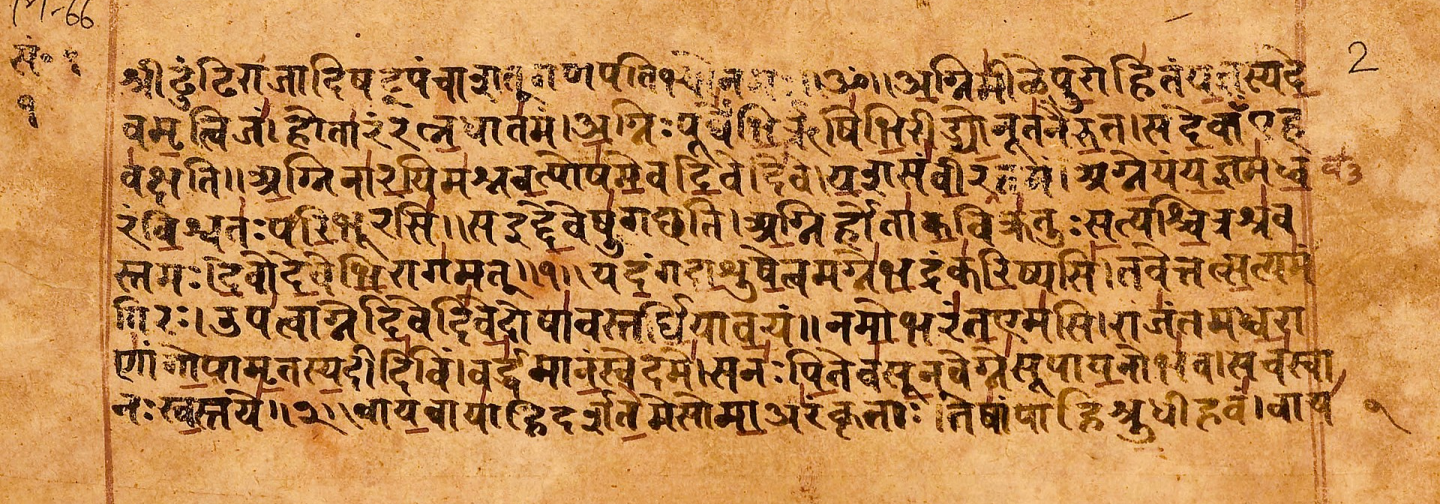 म-66
सं॰ १
१
2
श्रीढुंढिराजादिषट्पंचाशत्गणपतिभ्योनमः ॥ॐ॥ अग्निमीळेपुरोहितंयज्ञस्यदे
वमृत्विजं। होतारंरत्नधातमं। अग्निःपूर्वेभिर्ऋषिभिरीड्योनूतनैरुत। सदेवाँएह
वक्षति॥ अग्निनारयिमश्नवत्पोषमेवदिवेदिवे। यशसंवीरवत्तमं। अग्नेयंयज्ञमध्व
रंविश्वतःपरिभूरसि॥ सइद्देवेषुगछति। अग्निर्होताकविक्रतुःसत्यश्चित्रश्रव
स्तमः। देवोदेवेभिरागमत्॥१॥ यदंगदाशुषेत्वमग्नेभद्रंकरिष्यसि। तवेत्तत्सत्यमं
गिरः। उपत्वाग्नेदिवेदिवेदोषावस्तर्धियावयं॥ नमोभरंतएमसि। राजंतमध्वरा
णांगोपामृतस्यदीदिविं। वर्द्धमानंस्वेदमे। सनःपितेवसूनवेग्नेसूपायनोभव। सचस्वा
नःस्वस्तये॥२॥ वायवायाहिदर्शतेमेसोमाअरंकृताः। तेषांपाहिश्रुधीहवं। वाय
१